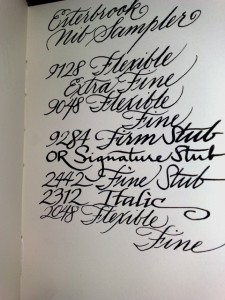 Esterbrook
Nib Sampler
9128 Flexible
Extra Fine
9048 Flexible
Fine
9284 Firm Stub
OR Signature Stub
2442 Fine Stub
2312 Italic
2048 Flexible
Fine